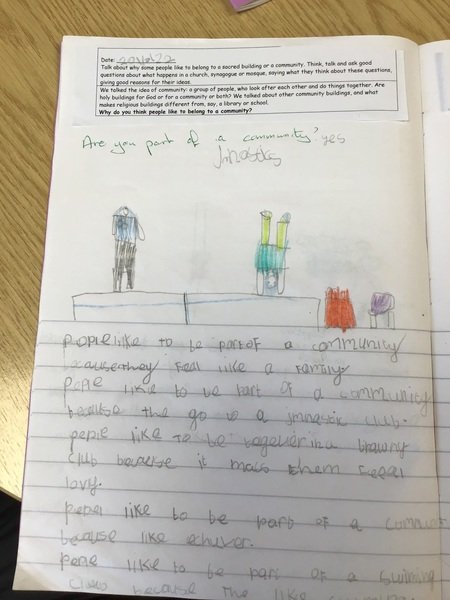 Date:
Talk about why some people like to belong to a sacred building or a community. Think, talk and ask good
questions about what happens in a church, synagogue or mosque, saying what they think about these questions,
giving good reasons for their ideas.
We talked the idea of community: a group of people, who look after each other and do things together. Are
holy buildings for God or for a community or both? We talked about other community buildings, and what
makes religious buildings different from, say, a library or school.
Why do you think people like to belong to a community?
Are you part of a community? yes
Jnnastks
pople like to be part of a community
because they feel like a family
pepie like to be part of a community
because the go to a jmnastic club.
pepie like to be together in a brawny
club because it macs them feeel
lovy.
pepel like to be part of a
because like
pepie like to be part of a swiming
because the like